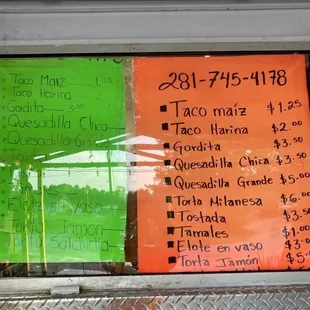 Taco Maiz 1.25
Taco Harina
Gordita 3.50
Quesadilla Chica
Quesadilla Grande
Elote en Vaso
Torta Jamón
Torta Salchicha
281-745-4178
Taco maíz $1.25
Taco Harina $2.00
Gordita $3.50
Quesadilla Chica $3.50
Quesadilla Grande $5.00
Torta Milanesa $6.00
Tostada $3.50
Tamales $1.00
Elote en vaso $3.00
Torta Jamón $5.